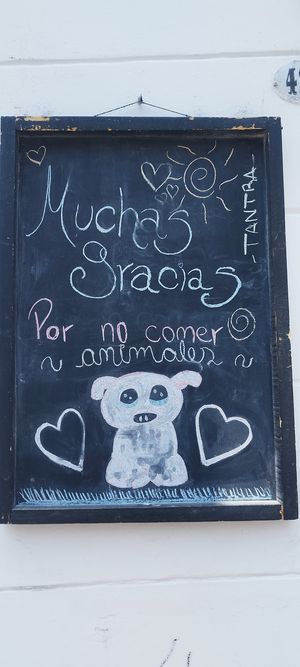 Muchas
gracias
Por no comer
~ animales ~
- TANTRA -
4